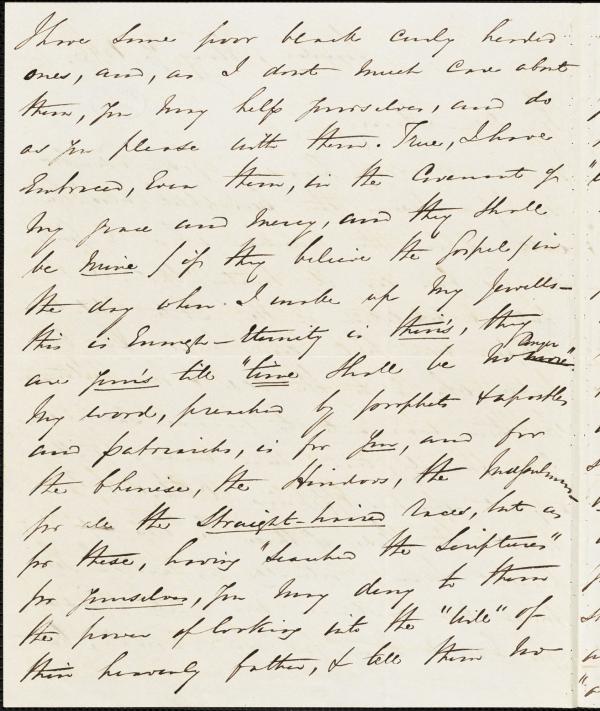 I have some poor black curly headed
ones, and, as I dont much care about
them, you may help yourselves, and do
as you please with them. True, I have
embraced, Even them, in the Covenant of
my grace and mercy, and they shall
be mine / if they believe the Gospel / in
the day when I make up my Jewells -
this is Enough - Eternity is thier's, they
are your's till "time shall be no longer"
My word, preached by prophets & apostles
and patriarchs, is for you, and for
the Chinese, the Hindoos, the Mussulmen -
for all the Straight-haired races, but as
for these, having "searched the Scriptures"
for yourselves, you may deny to them
the power of looking into the "will" of
their heavenly father, & tell them no